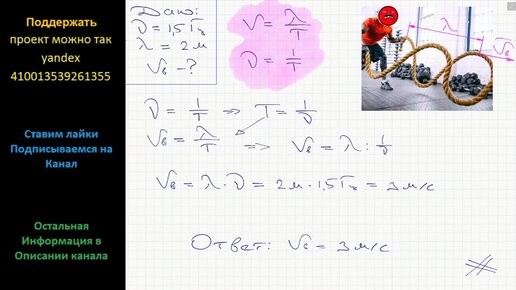 Поддержать
проект можно так
yandex
410013539261355
Ставим лайки
Подписываемся на
Канал
Остальная
Информация в
Описании канала
Дано:
ν = 1,5 Гц
λ = 2 м
Vв - ?
V = λ/T
ν = 1/T
λ
Vв
ν = 1/T => T = 1/ν
Vв = λ/T => Vв = λ : 1/ν
Vв = λ · ν = 2 м · 1,5 Гц = 3 м/с
Ответ: Vв = 3 м/с